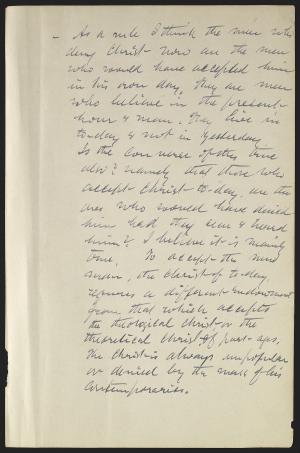 - As a rule I think the men who
deny Christ now are the men
who would have accepted him
in his own day. They are men
who believe in the present
hour & man. They live in
to-day & not in yesterday.
Is the converse of this true
also? namely that those who
accept Christ to-day, are the
ones who would have denied
him had they seen & heard
him? I believe it is mainly
true. To accept the new
man, the Christ of to-day,
requires a different endowment
from that which accepts
the theological Christ or the
theoretical Christ of past ages.
The Christ is always unpopular
or denied by the mass of his
contemporaries.